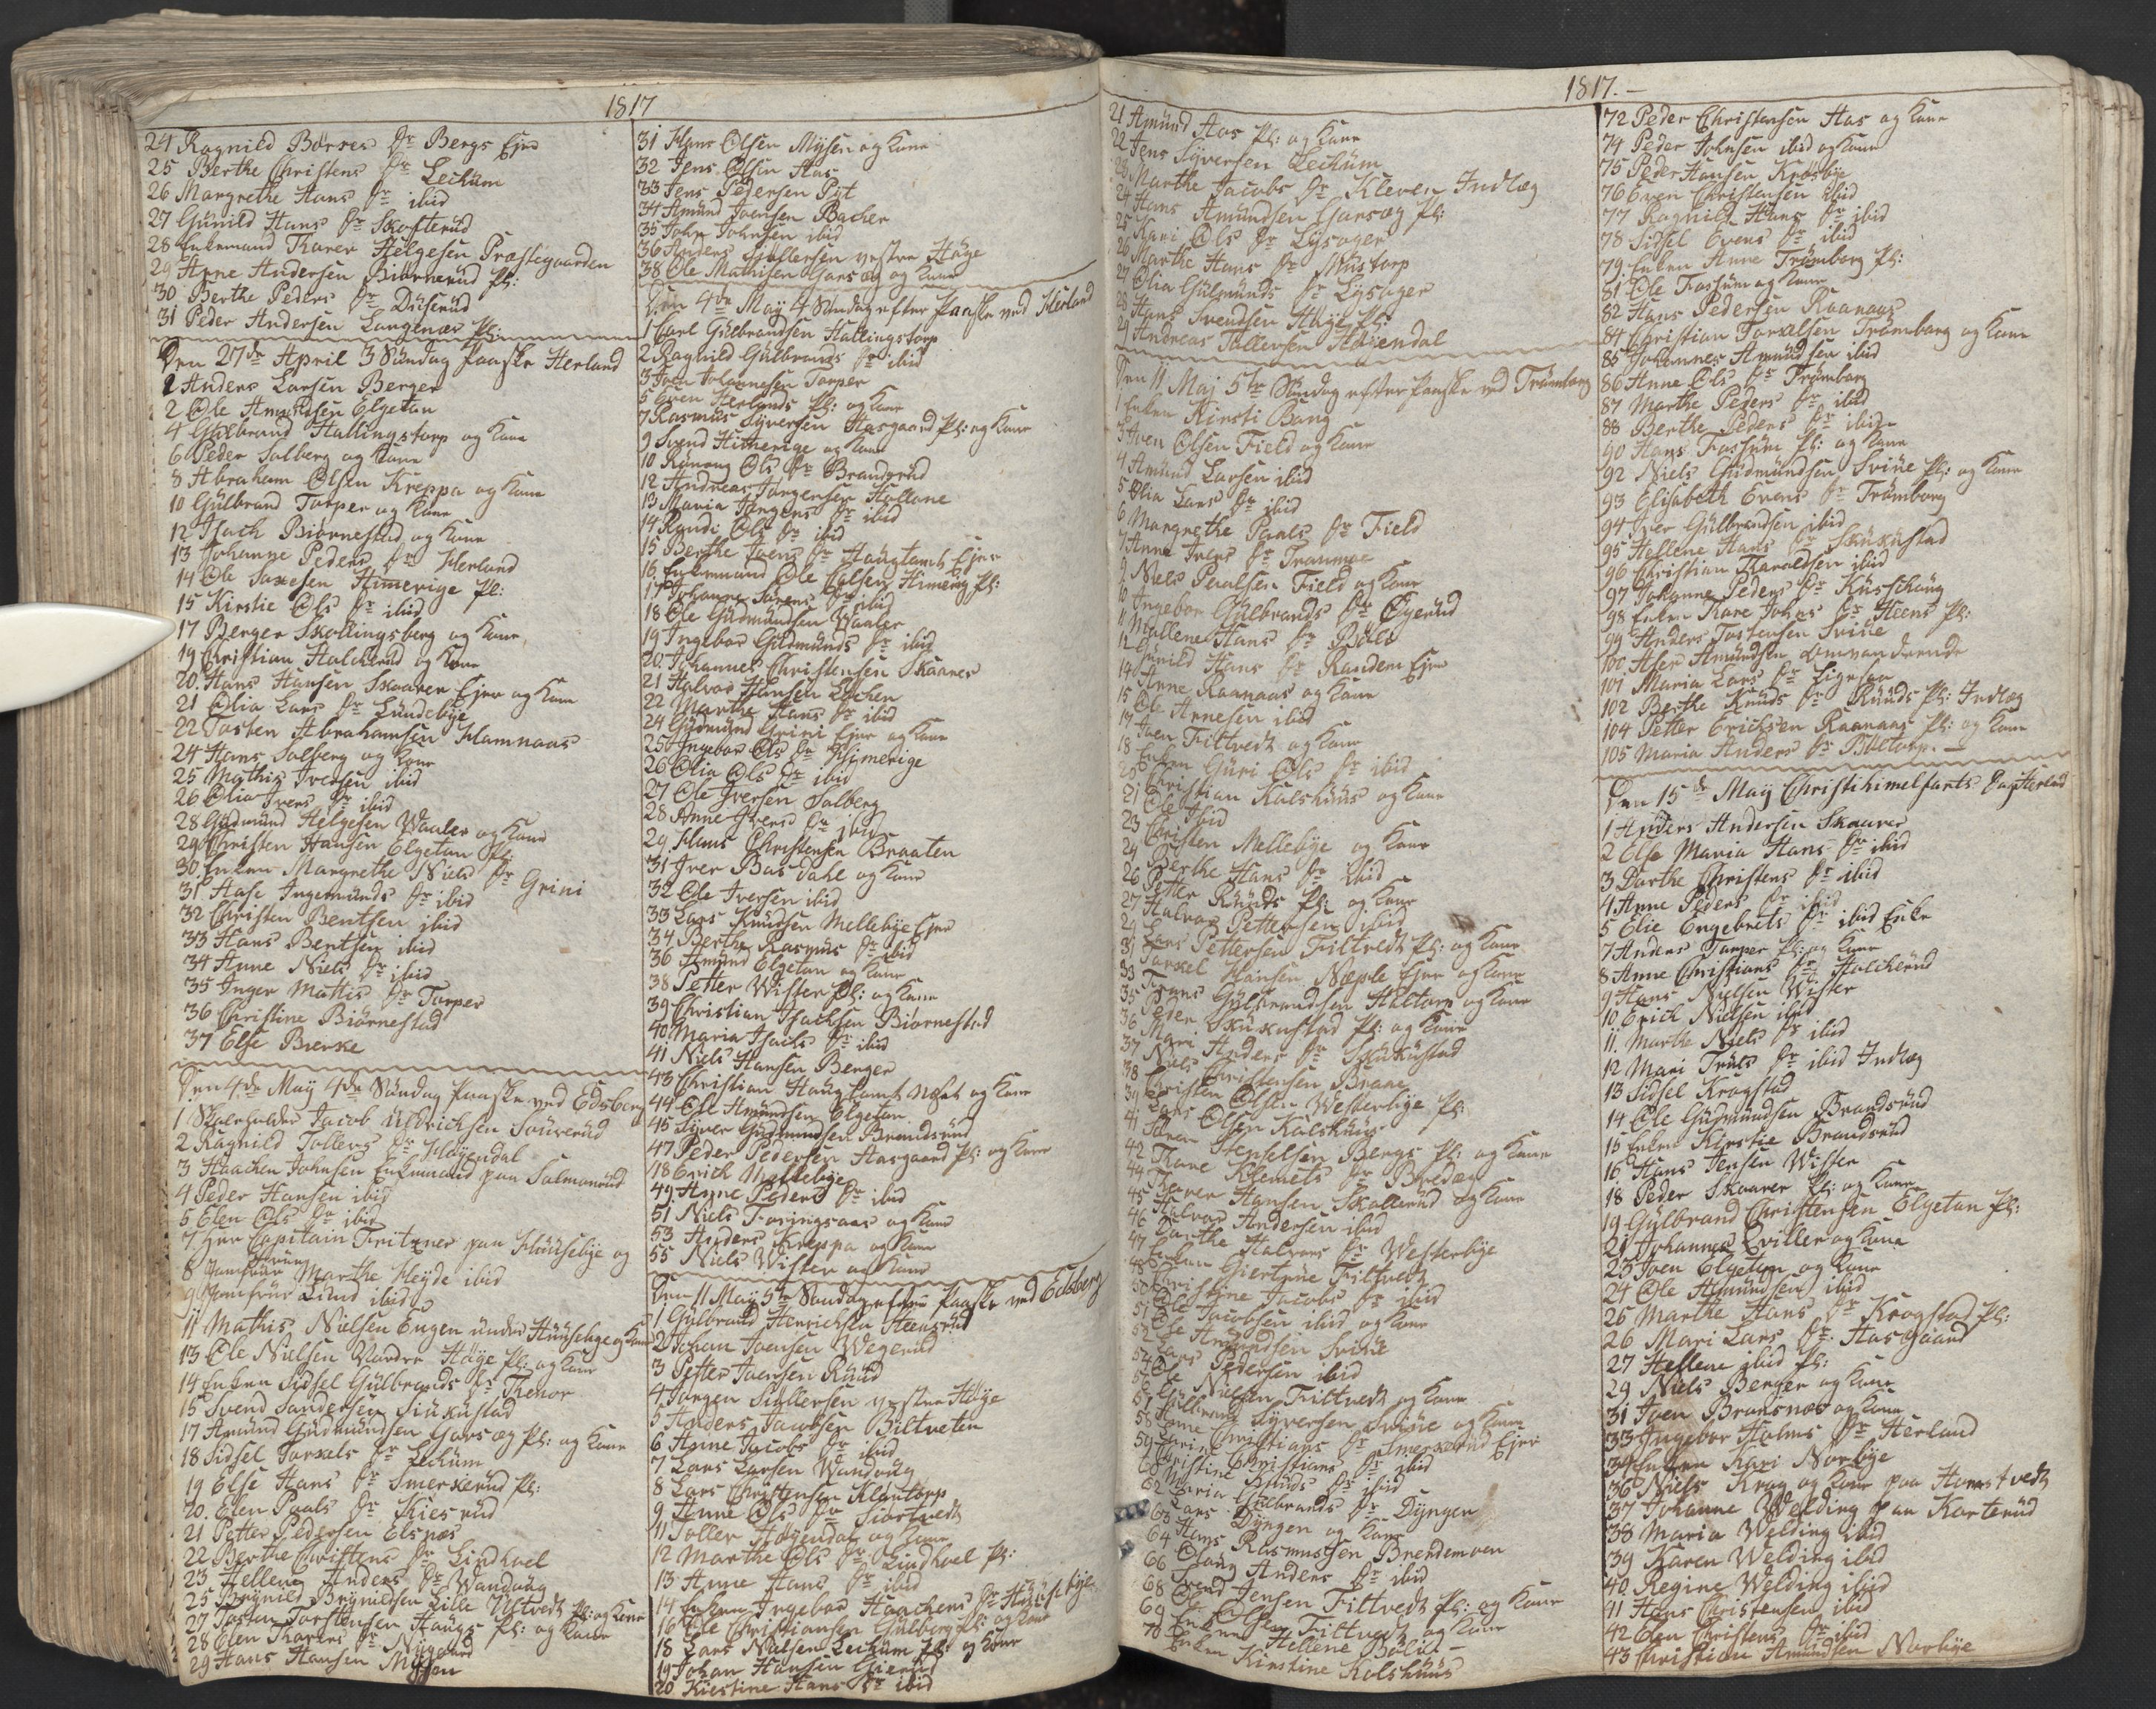 1817
24 Ragnild Børres Dr Bergs Ejer
25 Berthe Christens Dr Lechüm
26 Margrethe Hans Dr ibid
27 Günild Hans Dr Skofterüd
28 Enkemand Karer Helgesen Præstegaarden
29 Anne Andersen Biørnerüd Pl:
30 Berthe Peders Dr Düserüd
31 Peder Andersen Langenæs Pl:
Den 27de April 3 Søndag Paaske Herland
1 Anders Larsen Berger
2 Ole Amundsen Elgetan
4 Gülbrand Hallingstorp og Kone
6 Peder Solberg og Kone
8 Abraham Olsen Kreppa og Kone
10 Gülbrand Torper og Kone
12 Isach Biørnestad og Kone
13 Johanne Peders Dr Herland
14 Ole Himerige Pl:
15 Kirstie Ols Dr ibid
17 Berger Skollingsberg og Kone
19 Christian Halcherüd og Kone
20. Hans Hansen Skaarer Ejer og Kone
21 Olia Lars Dr Lündebye
22 Tosten Abrahamsen Hamnaas
24 Hans Solberg og Kone
25 Mathis Iversen ibid
26 Olia Ivers Dr ibid
28 Gudmünd Helgesen Waaler og Kone
29 Christen Hansen Elgetan Pl:
30. Enken Margrethe Niels Dr Grini
31 Aase Ingemünds Dr ibid
32 Christen Bentsen ibid
33 Hans Bentsen ibid
34 Anne Niels Dr ibid
35 Inger Mattis Dr Torper
36 Christine Biørnestad
37 Else Bierke
Den 4de May 4de Søndag Paaske ved Edsberg
1 Skoleholder Jacob Uldrichsen Soürerüd
2 Ragnild Tollers Dr Høyendal
3 Haachen Johnsen Enkemand paa Salmonrüd
4 Peder Hansen ibid
5 Elen Ols Dr ibid
7 Herr Capitain Fritzner paa Huüsebye og Frue
8 Jomfrue Marthe Heyde ibid
9 Jomfrue Lund ibid
11 Mathis Nielsen Engen ünder Huüsebye og Kone
13 Ole Nielsen Nordre Høye Pl: og Kone
14 Enken Sidsel Gülbrands Dr Thenor
15 Svend Sandersen Siükustad
17 Amünd Güdmündsen Gorsæg Pl: og Kone
18 Sidsel Torkels Dr Lechüm
19 Else Hans Dr Smerkerüd Pl:
20. Elen Paals Dr Kiesrüd
21 Petter Pedersen Elsnæs
22 Berthe Christens Dr Lindhoel
23 Hellene Anders Dr Wandüng
25 Brynild Brynildsen Lille Ustvedt Pl: og Kone
27 Tosten Torstensen Haügs Pl: og Kone
28 Elen Thores Dr Nÿgaard
29 Hans Hansen Mÿsen
31 Hans Olsen Mysen og Kone
32 Jens Olsen Aas
33 Jens Pedersen Pist
34 Amünd Joensen Bacher
35 John Johnsen ibid
36 Anders Siøllersen vestre Høye
38 Ole Mathisen Gorsæg og Kone
Den 4de May 4 Søndag efter Paaske ved Herland
1 Carl Gülbrandsen Hallingstorp
2 Ragnild Gülbrands Dr ibid
3 Joen Johannesen Torper
5 Even Herlands Pl: og Kone
7 Rasmus Syversen Aasgaard Pl: og Kone
9 Svend Himerige og Kone
10 Rünoug Ols Dr Brandsrüd
12 Andreas Jørgensen Hollane
13 Maria Jørgens Dr ibid
14 Randi Ols Dr ibid
15 Berthe Joens Dr Haügtomt Ejer
16 Enkemand Ole Himerig Pl:
17 Johanne Dr ibid
18 Ole Güdmündsen Waaler
19 Ingebor Güdmunds Dr ibid
20 Johannes Christensen Skaarer
21 Halvor Hansen Lochen
22 Marthe Hans Dr ibid
24 Güdmünd Grini Ejer og Kone
25 Ingebor Ols Dr Himerige
26 Olia Ols Dr ibid
27 Ole Iversen Solberg
28 Anne Ivers Dr ibid
29 Hans Christensen Braaten
31 Iver Bas Dahl og Kone
32 Ole Iversen ibid
33 Lars Knüdsen Mellebye Ejer
34 Berthe Rasmüs Dr ibid
36 Amünd Elgetan og Kone
38 Petter Wister Pl: og Kone
39 Christian Isachsen Biørnestad
40 Maria Isachs Dr ibid
41 Niels Hansen Berger
43 Christian Haügtomt og Kone
44 Ole Amündsen Elgetan
45 Siver Güdmündsen Brandsrüd
47 Peder Pedersen Aasgaard Pl: og Kone
48 Erich Mellebye
49 Anne Peders Dr ibid
51 Niels Foringsaas og Kone
53 Anders Kreppa og Kone
55 Niels Wister og Kone
Den 11 May 5te Søndag efter Paaske ved Edsberg
1 Gülbrand Henrichsen Steensrüd
2 Johan Joensen Wegerüd
3 Petter Joensen Rüüd
4 Jørgen Siøllersen vestre Høÿe
5 Anders Jacobsen Biltveten
6 Anne Jacobs Dr ibid
7 Lars Larsen Wandüng
8 Lars Christensen Kløntorp
9 Anne Ols Dr Siørtvedt
11 Toller Høÿendal og Kone
12 Marthe Ols Dr Lindhoel Pl:
13 Anne Hans Dr ibid
14 Enken Ingebor Haachens Dr Huüsebÿe
16 Ole Christiansen Gulberg Pl: og Kone
18 Lars Nielsen Lechüm Pl: og Kone
19 Johan Hansen Gierüd
20. Kiestine Hans Dr ibid
1817.
21 Amünd Aas Pl: og Kone
22 Jens Syversen Lechüm
23 Marthe Jacobs Dr Kleven Indlæg
24 Hans Amündsen Gorsæg Pl:
25 Kari Ols Dr Lÿsager
26 Marthe Hans Dr Müstorp
27 Olia Gülmünds Dr Lÿsager
28 Hans Svendsen Høye Pl:
29 Andreas Tollersen Høyendal
Den 11 Maj 5te Søndag efter Paaske ved Trømborg
1 Enken Kirsti Bang
3 Iven Olsen Field og Kone
4 Amünd Larsen ibid
5 Olia Lars Dr ibid
6 Margrethe Paals Dr Field
7 Anne Ivers Dr
9 Niels Paalsen Field og Kone
10 Ingebor Gülbrands Dr Øgerüd
11 Mallene Hans Dr
12 Günild Hans Dr Randem Ejer
14 Arne Raanaas og Kone
15 Ole Arnesen ibid
17 Joen Filtvedt og Kone
18 Enken Güri Ols Dr ibid
20 Christian Kalshüüs og Kone
21 Ole ibid
23 Christen Mellebÿe og Kone
24 Berthe Hans Dr ibid
26 Petter Rüüds Pl: og Kone
27 Halvor Pettersen ibid
29 Lars Pettersen Filtvedt Pl: og Kone
31 Torkel Hansen Næple Ejer og Kone
33 Frans Gülbrandsen Høltorp og Kone
35 Peder Skükustad Pl: og Kone
36 Mari Anders Dr Skükustad
37 Niels Christensen Braae
38 Christen Olsen Westerbye Pl:
39 Lars Olsen Kalshüüs
41 Søren Stenselsen Bergs Pl: og Kone
42 Thore Klemets Dr Bredæn
44 Karer Hansen Skallerüd og Kone
45 Halvor Andersen ibid
46 Dorthe Halvors Dr Westerbÿe
47 Enken Giertrüe Filtvedt
48 Christine Jacobs Dr ibid
50 Ole Jacobsen ibid og Kone
51 Ole Amundsen Sviüe
52 Lars Pedersen ibid
54 Ole Nielsen Filtvedt og Kone
56 Gülbrand Syversen Sviüe og Kone
57 Anne Christians Dr Smerkerüd Ejer
58 Christine Christians Dr ibid
60 Maria Knüds Dr ibid
62 Gülbrands Dr Dÿngen
63 Lars Dÿngen og Kone
64 Hans Rasmussen Brendemoen
66 Anders Dr ibid
68 Svend Jensen Filtvedt Pl: og Kone
69 Filtvedt og Kone
70 Enken Hellene Bøli
Enken Kirstine Kolshüüs
72 Peder Christensen Aas og Kone
74 Peder Johnsen ibid og Kone
75 Peder Hansen Krosbye
76 Even Christensen ibid
77 Ragnild Hans Dr ibid
78 Sidsel Evens Dr ibid
79. Enken Anne Trømborg Pl:
81 Ole Fossüm og Kone
82 Hans Pedersen Raanaas
84 Christian Torkelsen Trømborg og Kone
85 Johannes Amündsen ibid
86 Anne Ols Dr Trømborg
87 Marthe Peders Dr ibid
88 Berthe Peders Dr ibid
90 Hans Fossüm Pl: og Kone
92 Niels Güdmündsen Sviüe Pl: og Kone
93 Elisabeth Evens Dr Trømborg
94 Iver Gülbrandsen ibid
95 Hellene Hans Dr Skükustad
96 Christian Haraldsen ibid
97 Johanne Peders Dr
98 Enken Kare Johns Dr Steens Pl:
99 Anders Tostensen Sviüe
100 Aser Amündsen omvandrende
101 Maria Lars Dr
102 Berthe Knüds Dr Rüüds Pl: Indlæg
104 Petter Erichsen Raanaas Pl: og Kone
105 Maria Anders Dr
Den 15de May Christi himmelfarts Dag Herland
1 Anders Andersen Skaarer
2 Else Maria Hans Dr ibid
3 Dorthe Christens Dr ibid
4 Anne Peders Dr ibid
5 Elie Engebrets Dr ibid Enke
7 Anders Torper Pl: og Kone
8 Anne Christians Dr Halcherüd
9 Hans Nielsen Wister
10 Erich Nielsen ibid
11. Marthe Niels Dr ibid
12 Mari Trüls Dr ibid Indlæg
13 Sidsel Krogstad
14 Ole Güdmündsen Brandsrüd
15 Enken Kirstie Brandsrüd
16 Hans Jensen Wister
18 Peder Skaarer Pl: og Kone
19 Gülbrand Christensen Elgetan Pl:
21 Johannes Qviller og Kone
23 Joen Elgetan og Kone
24 Ole Amündsen ibid
25 Marthe Hans Dr Krogstad Pl:
26 Mari Lars Dr Aasgaard
27 Hellene ibid Pl:
29 Niels Berger og Kone
31 Joen Bransnæs og Kone
33 Ingebor Holms Dr Herland
34 Enken Kari Norbye
36 Niels Krog og Kone paa Hornstvedt
37 Johanne Welding paa Karterüd
38 Maria Welding ibid
39 Karen Welding ibid
40 Regine Welding ibid
41 Hans Christensen ibid
42 Elen Christens Dr ibid
43 Christian Amündsen Norbÿe